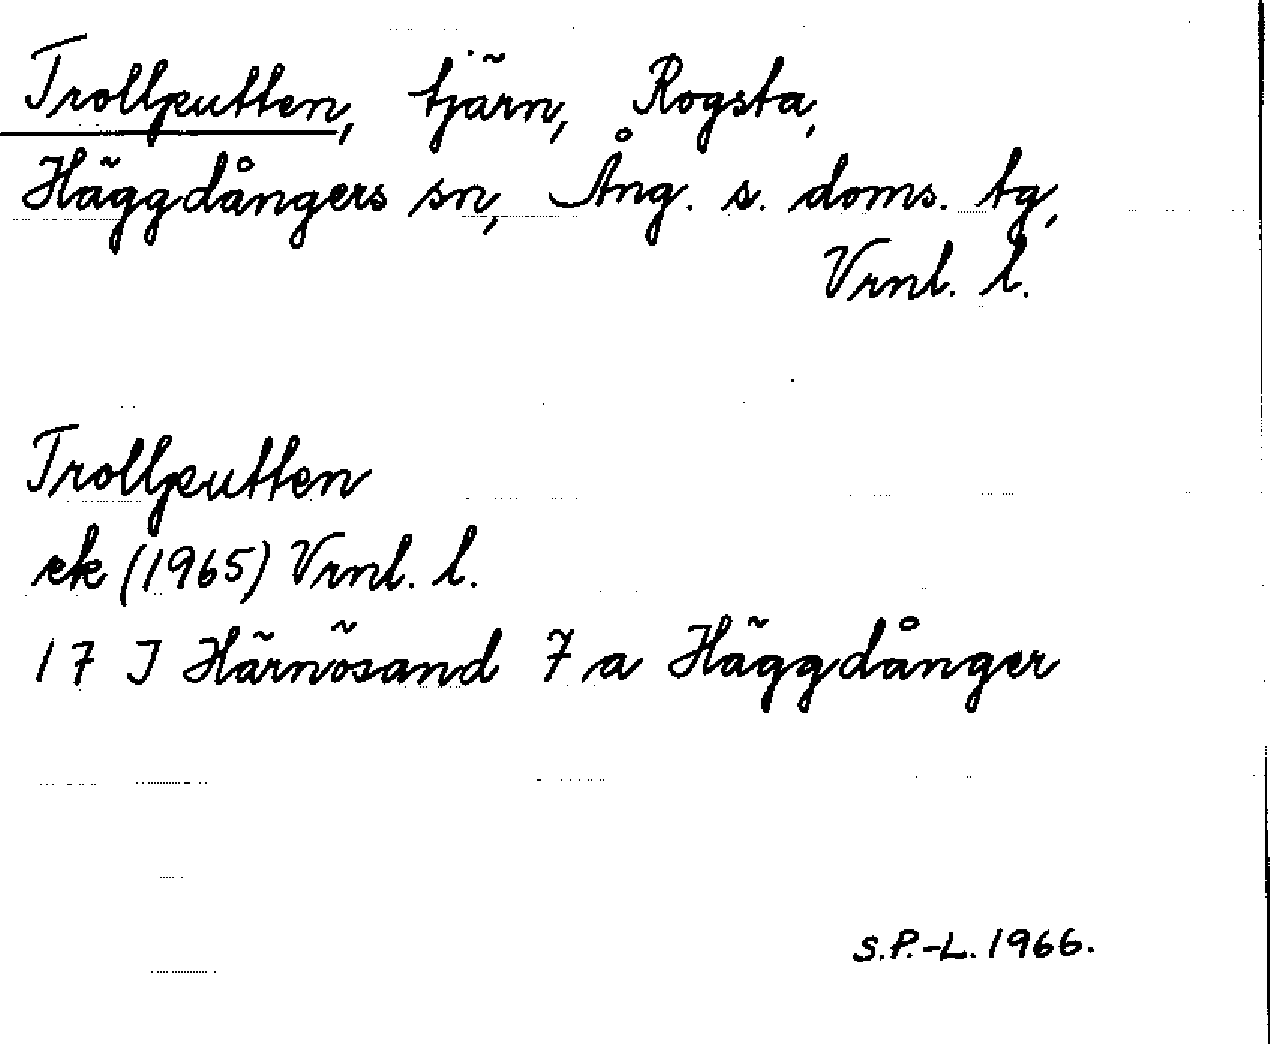 Trollputten, tjärn, Rogsta,
Häggdångers sn, Ång. s. doms. tg,
Vrnl. l.
Trollputten
ek (1965) Vrnl. l.
17 J Härnösand 7 a Häggdånger
S.P.-L. 1966.